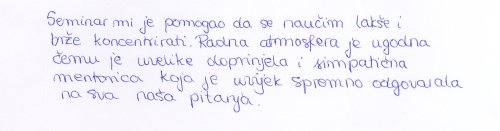 Seminar mi je pomogao da se naučim lakše i
brže koncentrirati. Radna atmosfera je ugodna
čemu je uvelike doprinjela i simpatična
mentorica koja je uvijek spremno odgovarala
na sva naša pitanja.